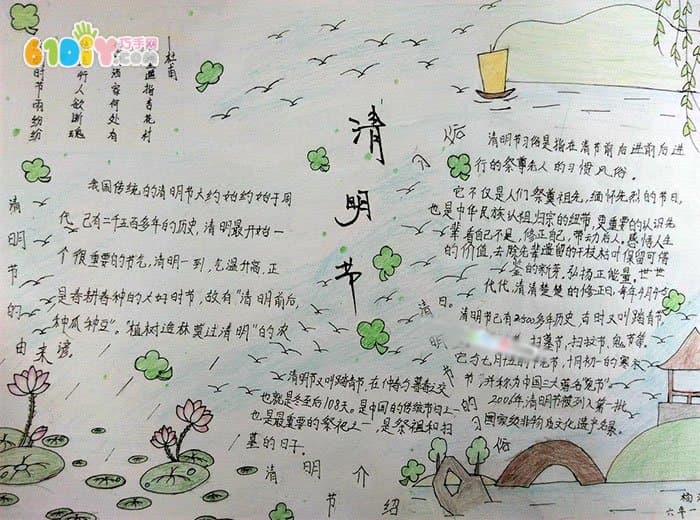 61DIY巧手网
杜甫
遥指杏花村
何处有
行人欲断魂
时节雨纷纷
清明节
清明节的由来
我国传统的清明节大约始约始于周
代,己有二千五百多年的历史,清明最开始一
个很重要的节气,清明一到,气温升高,正
是春耕春种的大好时节,故有“清明前后,
种瓜种豆”。“植树造林莫过清明”的农
谚。
清明节又叫踏青节,在仲春与暮春之交
也就是冬至后108天。是中国的传统节日之一
也是最重要的祭祀之一,是祭祖和扫
墓的日子。
清明节介绍
介
俗
清明节习俗是指在清节前后进前后进
行的祭尊老人的习惯风俗。
它不仅是人们祭奠祖先,缅怀先烈的节日,
也是中华民族认祖归宗的纽带,更重要的认识先
辈看自己不是,修正自己,带动后人,感悟人生
的价值,去除先辈遗留的干枝枯叶保留可借
鉴的新芽,弘扬正能量,世世
代代,清清楚楚的修正日,每年4月4
日。
清明节己有2500多年历史,古时又叫踏青节
扫墓节,扫坟节,鬼节等。
它与七月十五的中元节,十月初一的寒衣
节,并称为中国三大著名鬼节”
2006年清明节被列入第一批
国家级非物质文化遗产名录。
清明节的习俗
六年一